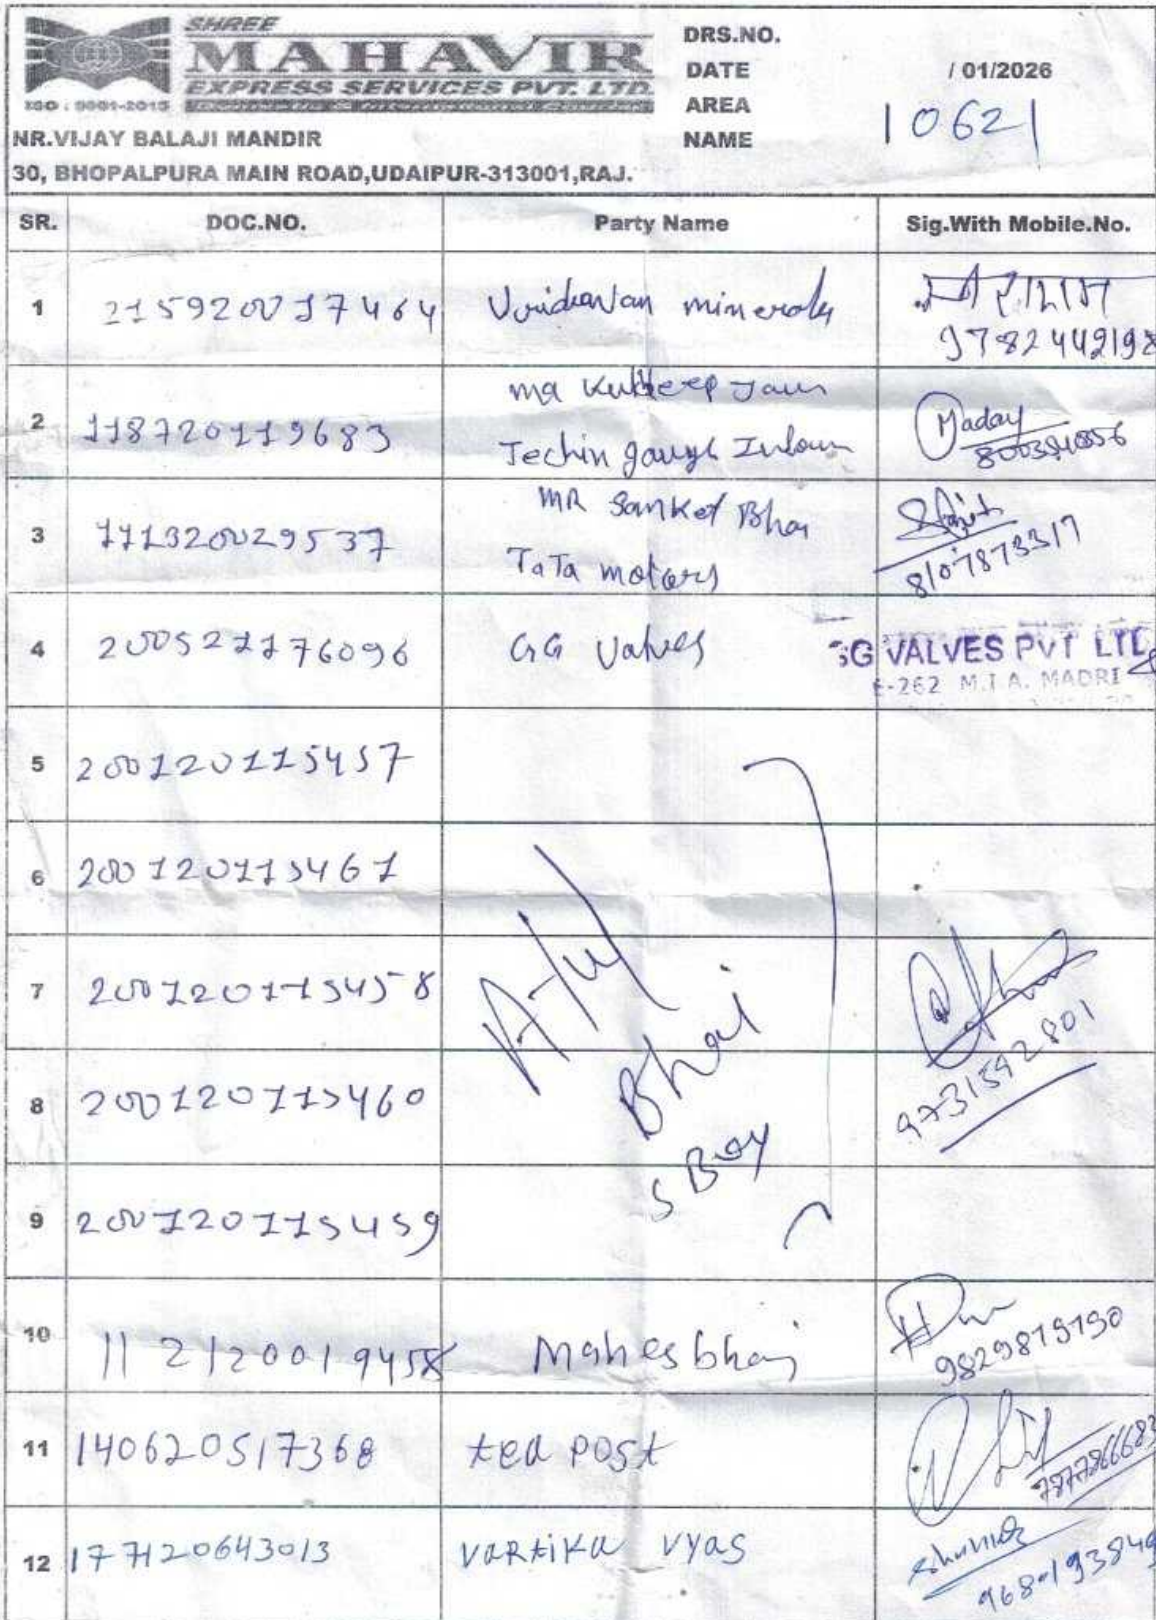 SHREE
MAHAVIR
EXPRESS SERVICES PVT. LTD.
ISO : 9001-2015
NR.VIJAY BALAJI MANDIR
30, BHOPALPURA MAIN ROAD,UDAIPUR-313001,RAJ.
DRS.NO.
DATE / 01/2026
AREA
NAME
10621
SR. DOC.NO. Party Name Sig.With Mobile.No.
1 215920017464 minerals
9782442198
2 118720119683 Kuldeep Jain
Techin
3 111320029537 MR Sanket Bhai
TaTa motors
8107873317
4 200521176096 GG Valves
GG VALVES PVT LTD
E-262 M.I.A. MADRI
5 200120115457
6 200120115461
7 200120115458
8 200120115460
9 200120115459
Atul
Bhai
5 Boy
9731592801
10 112120019458 Mahesbhai
9829819190
11 140620517368 ted post
7877866683
12 177120643013 VARtiKa Vyas